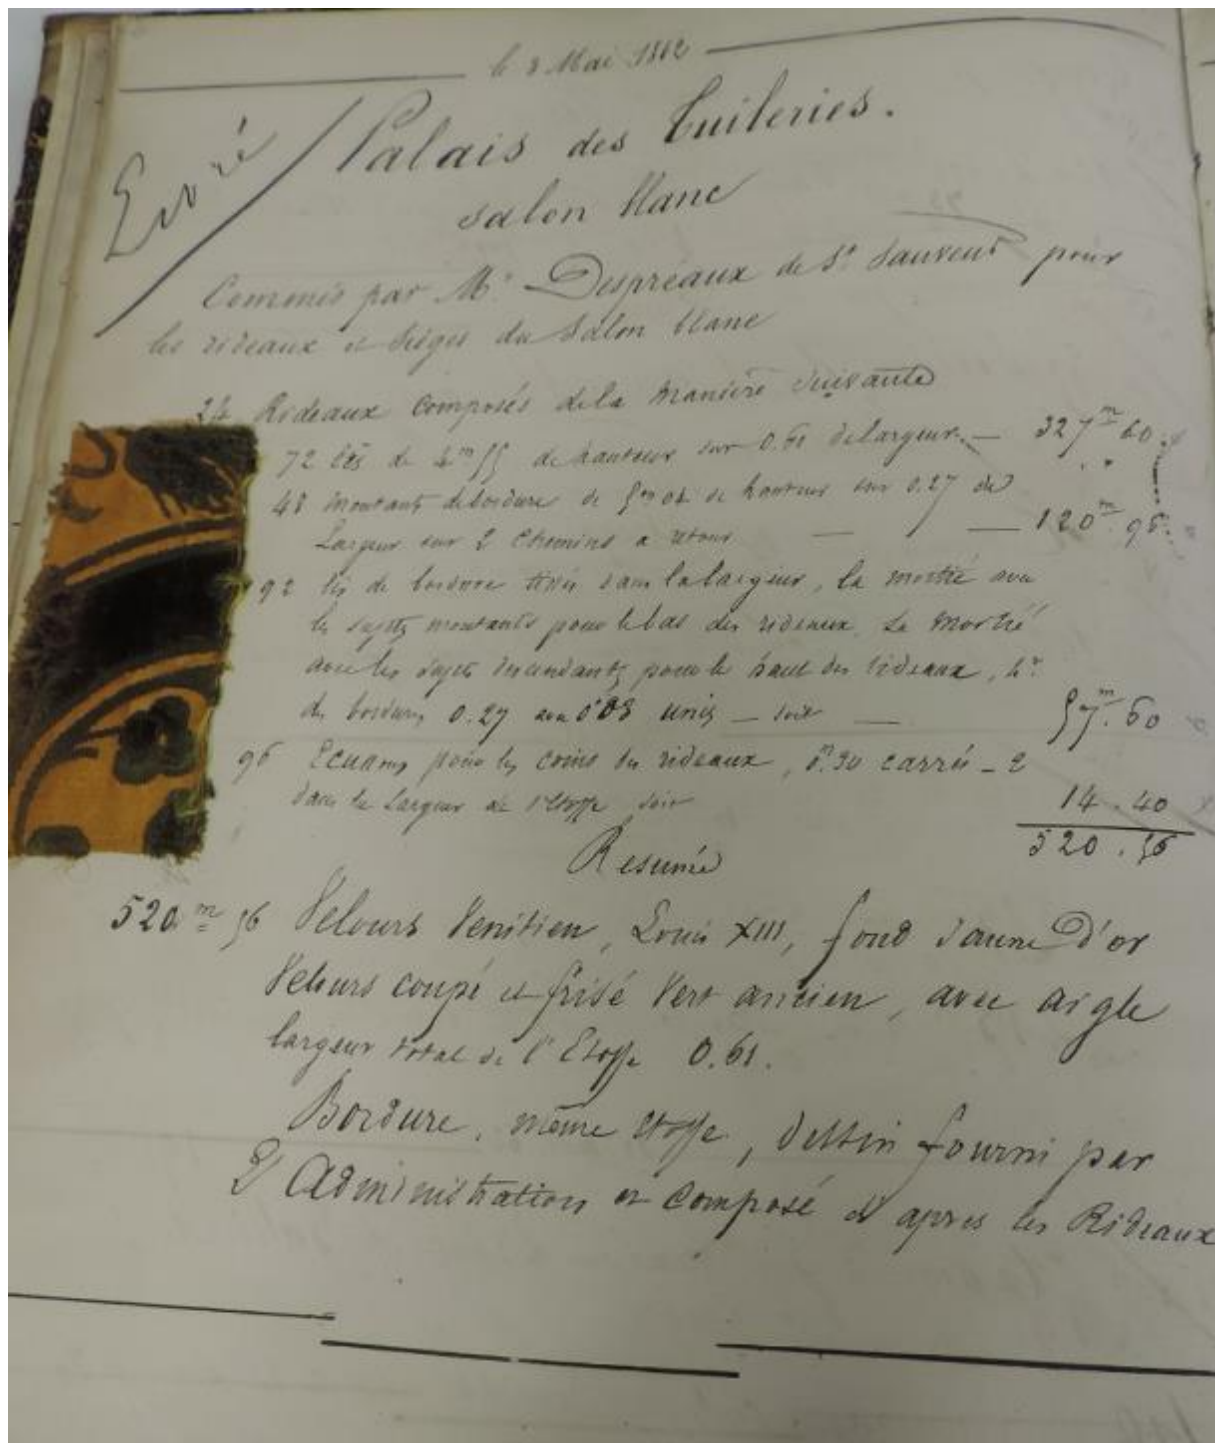 le 3 Mai 1862
Palais des Tuileries.
salon blanc
Commis par Mr Despréaux de St Sauveur pour
les rideaux et sièges du Salon blanc
24 Rideaux composés de la manière suivante
72 lés de 4m55 de hauteur sur 0.61 de largeur. — 327m60
48 montants de bordure de 5m04 de hauteur sur 0.27 de
Largeur sur 2 chemins a retour — — 120m.96
192 lés de bordure tissés dans la largeur, la moitié avec
les sujets montants pour le bas des rideaux. La moitié
avec les sujets descendants pour le haut des rideaux, hr
des bordures 0.27 avec 0.03 unis — soit — 57m.60
96 Ecussons pour les coins des rideaux, 0m.30 carrés — 2
dans la Largeur de l'étoffe soit 14.40
520.56
Resumé
520m56 Velours Venitien, Louis XIII, fond Jaune d'or
Velours coupé et frisé Vert ancien, avec aigle
largeur total de l'Etoffe 0.61.
Bordure, même étoffe, dessin fourni par
l'Administration et composé d'apres les Rideaux